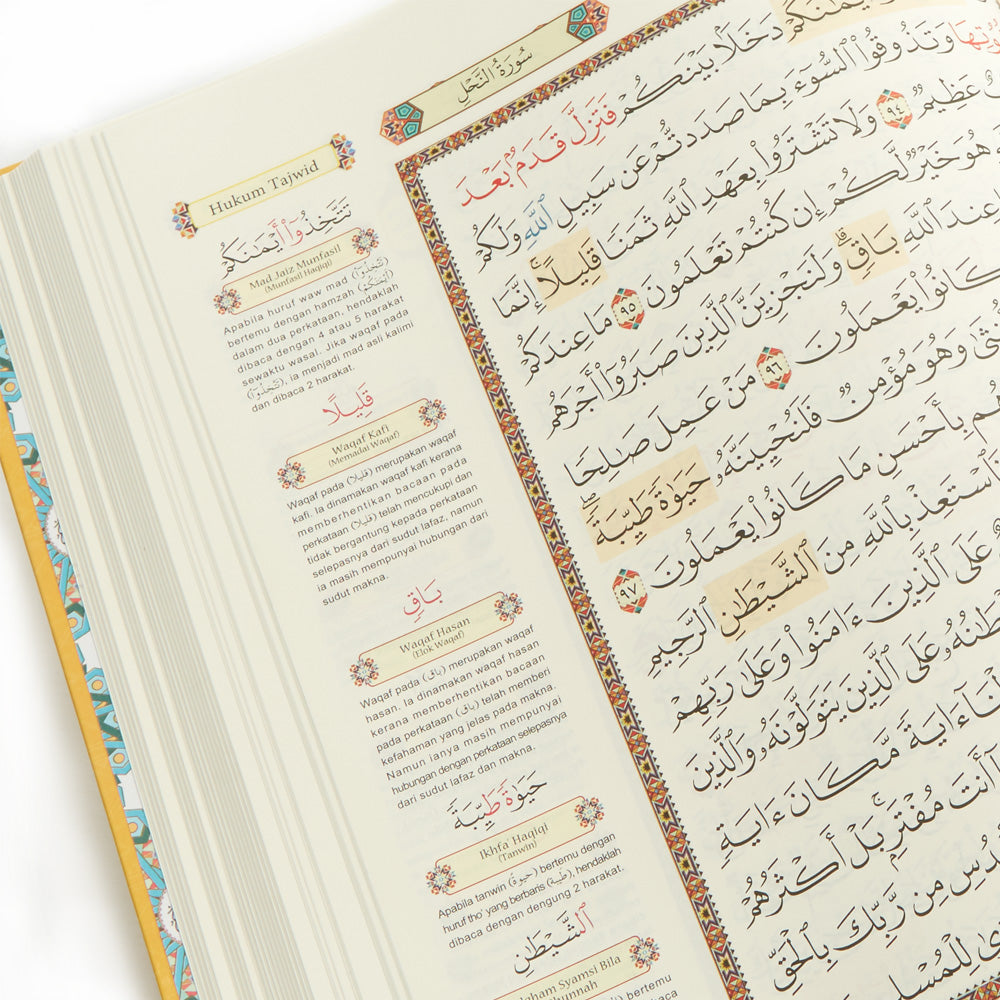 سُورَةُ النَّحْلِ
Hukum Tajwid
تَتَّخِذُوٓا۟ أَيْمَـٰنَكُمْ
Mad Jaiz Munfasil
(Munfasil Haqiqi)
Apabila huruf waw mad (تَتَّخِذُوٓا۟)
bertemu dengan hamzah (أَيْمَـٰنَكُمْ)
dalam dua perkataan, hendaklah
dibaca dengan 4 atau 5 harakat
sewaktu wasal. Jika waqaf pada
(تَتَّخِذُوٓا۟), ia menjadi mad asli kalimi
dan dibaca 2 harakat.
قَلِيلًا
Waqaf Kafi
(Memadai Waqaf)
Waqaf pada (قليلا) merupakan waqaf
kafi. Ia dinamakan waqaf kafi kerana
memberhentikan bacaan pada
perkataan (قليلا) telah mencukupi dan
tidak bergantung kepada perkataan
selepasnya dari sudut lafaz, namun
ia masih mempunyai hubungan dari
sudut makna.
بَاقٍ
Waqaf Hasan
(Elok Waqaf)
Waqaf pada (باق) merupakan waqaf
hasan. Ia dinamakan waqaf hasan
kerana memberhentikan bacaan
pada perkataan (باق) telah memberi
kefahaman yang jelas pada makna.
Namun ianya masih mempunyai
hubungan dengan perkataan selepasnya
dari sudut lafaz dan makna.
حَيَوٰةً طَيِّبَةً
Ikhfa Haqiqi
(Tanwin)
Apabila tanwin (حيوة) bertemu dengan
huruf tho' yang berbaris (طيبة), hendaklah
dibaca dengan dengung 2 harakat.
ٱلشَّيْطَـٰنِ
Syamsi Bila
bertemu
دَخَلًۢا بَيْنَكُمْ فَتَزِلَّ قَدَمٌۢ بَعْدَ
وَتَذُوقُوا۟ ٱلسُّوٓءَ بِمَا صَدَدتُّمْ عَن سَبِيلِ ٱللَّهِ وَلَكُمْ
عَظِيمٌ ٩٤ وَلَا تَشْتَرُوا۟ بِعَهْدِ ٱللَّهِ ثَمَنًا قَلِيلًا ۚ إِنَّمَا
هُوَ خَيْرٌ لَّكُمْ إِن كُنتُمْ تَعْلَمُونَ ٩٥ مَا عِندَكُمْ
عِندَ ٱللَّهِ بَاقٍ ۗ وَلَنَجْزِيَنَّ ٱلَّذِينَ صَبَرُوٓا۟ أَجْرَهُم
كَانُوا۟ يَعْمَلُونَ ٩٦ مَنْ عَمِلَ صَـٰلِحًا
وَهُوَ مُؤْمِنٌ فَلَنُحْيِيَنَّهُۥ حَيَوٰةً طَيِّبَةً ۖ
بِأَحْسَنِ مَا كَانُوا۟ يَعْمَلُونَ ٩٧
فَٱسْتَعِذْ بِٱللَّهِ مِنَ ٱلشَّيْطَـٰنِ ٱلرَّجِيمِ
عَلَى ٱلَّذِينَ ءَامَنُوا۟ وَعَلَىٰ رَبِّهِمْ
عَلَى ٱلَّذِينَ يَتَوَلَّوْنَهُۥ وَٱلَّذِينَ
ءَايَةً مَّكَانَ ءَايَةٍ
أَنتَ مُفْتَرٍۭ ۚ بَلْ أَكْثَرُهُمْ
مِن رَّبِّكَ بِٱلْحَقِّ